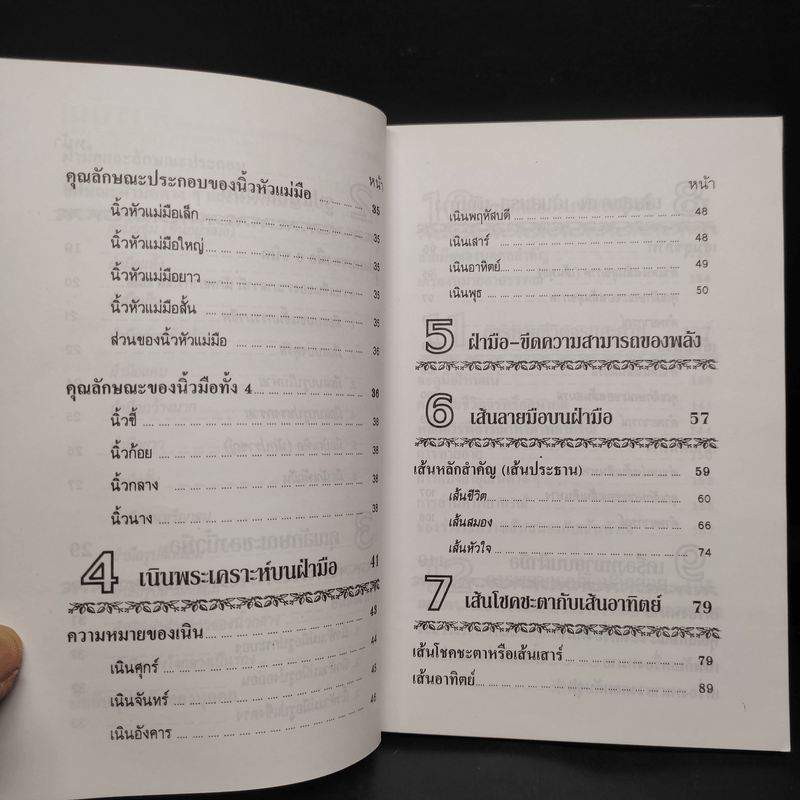 หน้า
คุณลักษณะประกอบของนิ้วหัวแม่มือ 35
นิ้วหัวแม่มือเล็ก 35
นิ้วหัวแม่มือใหญ่ 35
นิ้วหัวแม่มือยาว 35
นิ้วหัวแม่มือสั้น 35
ส่วนของนิ้วหัวแม่มือ 36
คุณลักษณะของนิ้วมือทั้ง 4 36
นิ้วชี้ 38
นิ้วก้อย 38
นิ้วกลาง 38
นิ้วนาง 38
4 เนินพระเคราะห์บนฝ่ามือ 41
ความหมายของเนิน 43
เนินศุกร์ 44
เนินจันทร์ 45
เนินอังคาร 46
หน้า
เนินพฤหัสบดี 48
เนินเสาร์ 48
เนินอาทิตย์ 49
เนินพุธ 50
5 ฝ่ามือ-ขีดความสามารถของพลัง
6 เส้นลายมือบนฝ่ามือ 57
เส้นหลักสำคัญ (เส้นประธาน) 59
เส้นชีวิต 60
เส้นสมอง 66
เส้นหัวใจ 74
7 เส้นโชคชะตากับเส้นอาทิตย์ 79
เส้นโชคชะตาหรือเส้นเสาร์ 79
เส้นอาทิตย์ 89